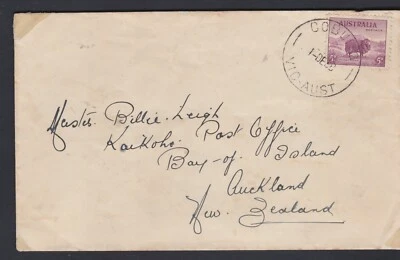 AUSTRALIA
VIC-AUST
Master. Billie. Leigh
Kaikohe. Post Office
Bay-of. Island
Auckland
New. Zealand